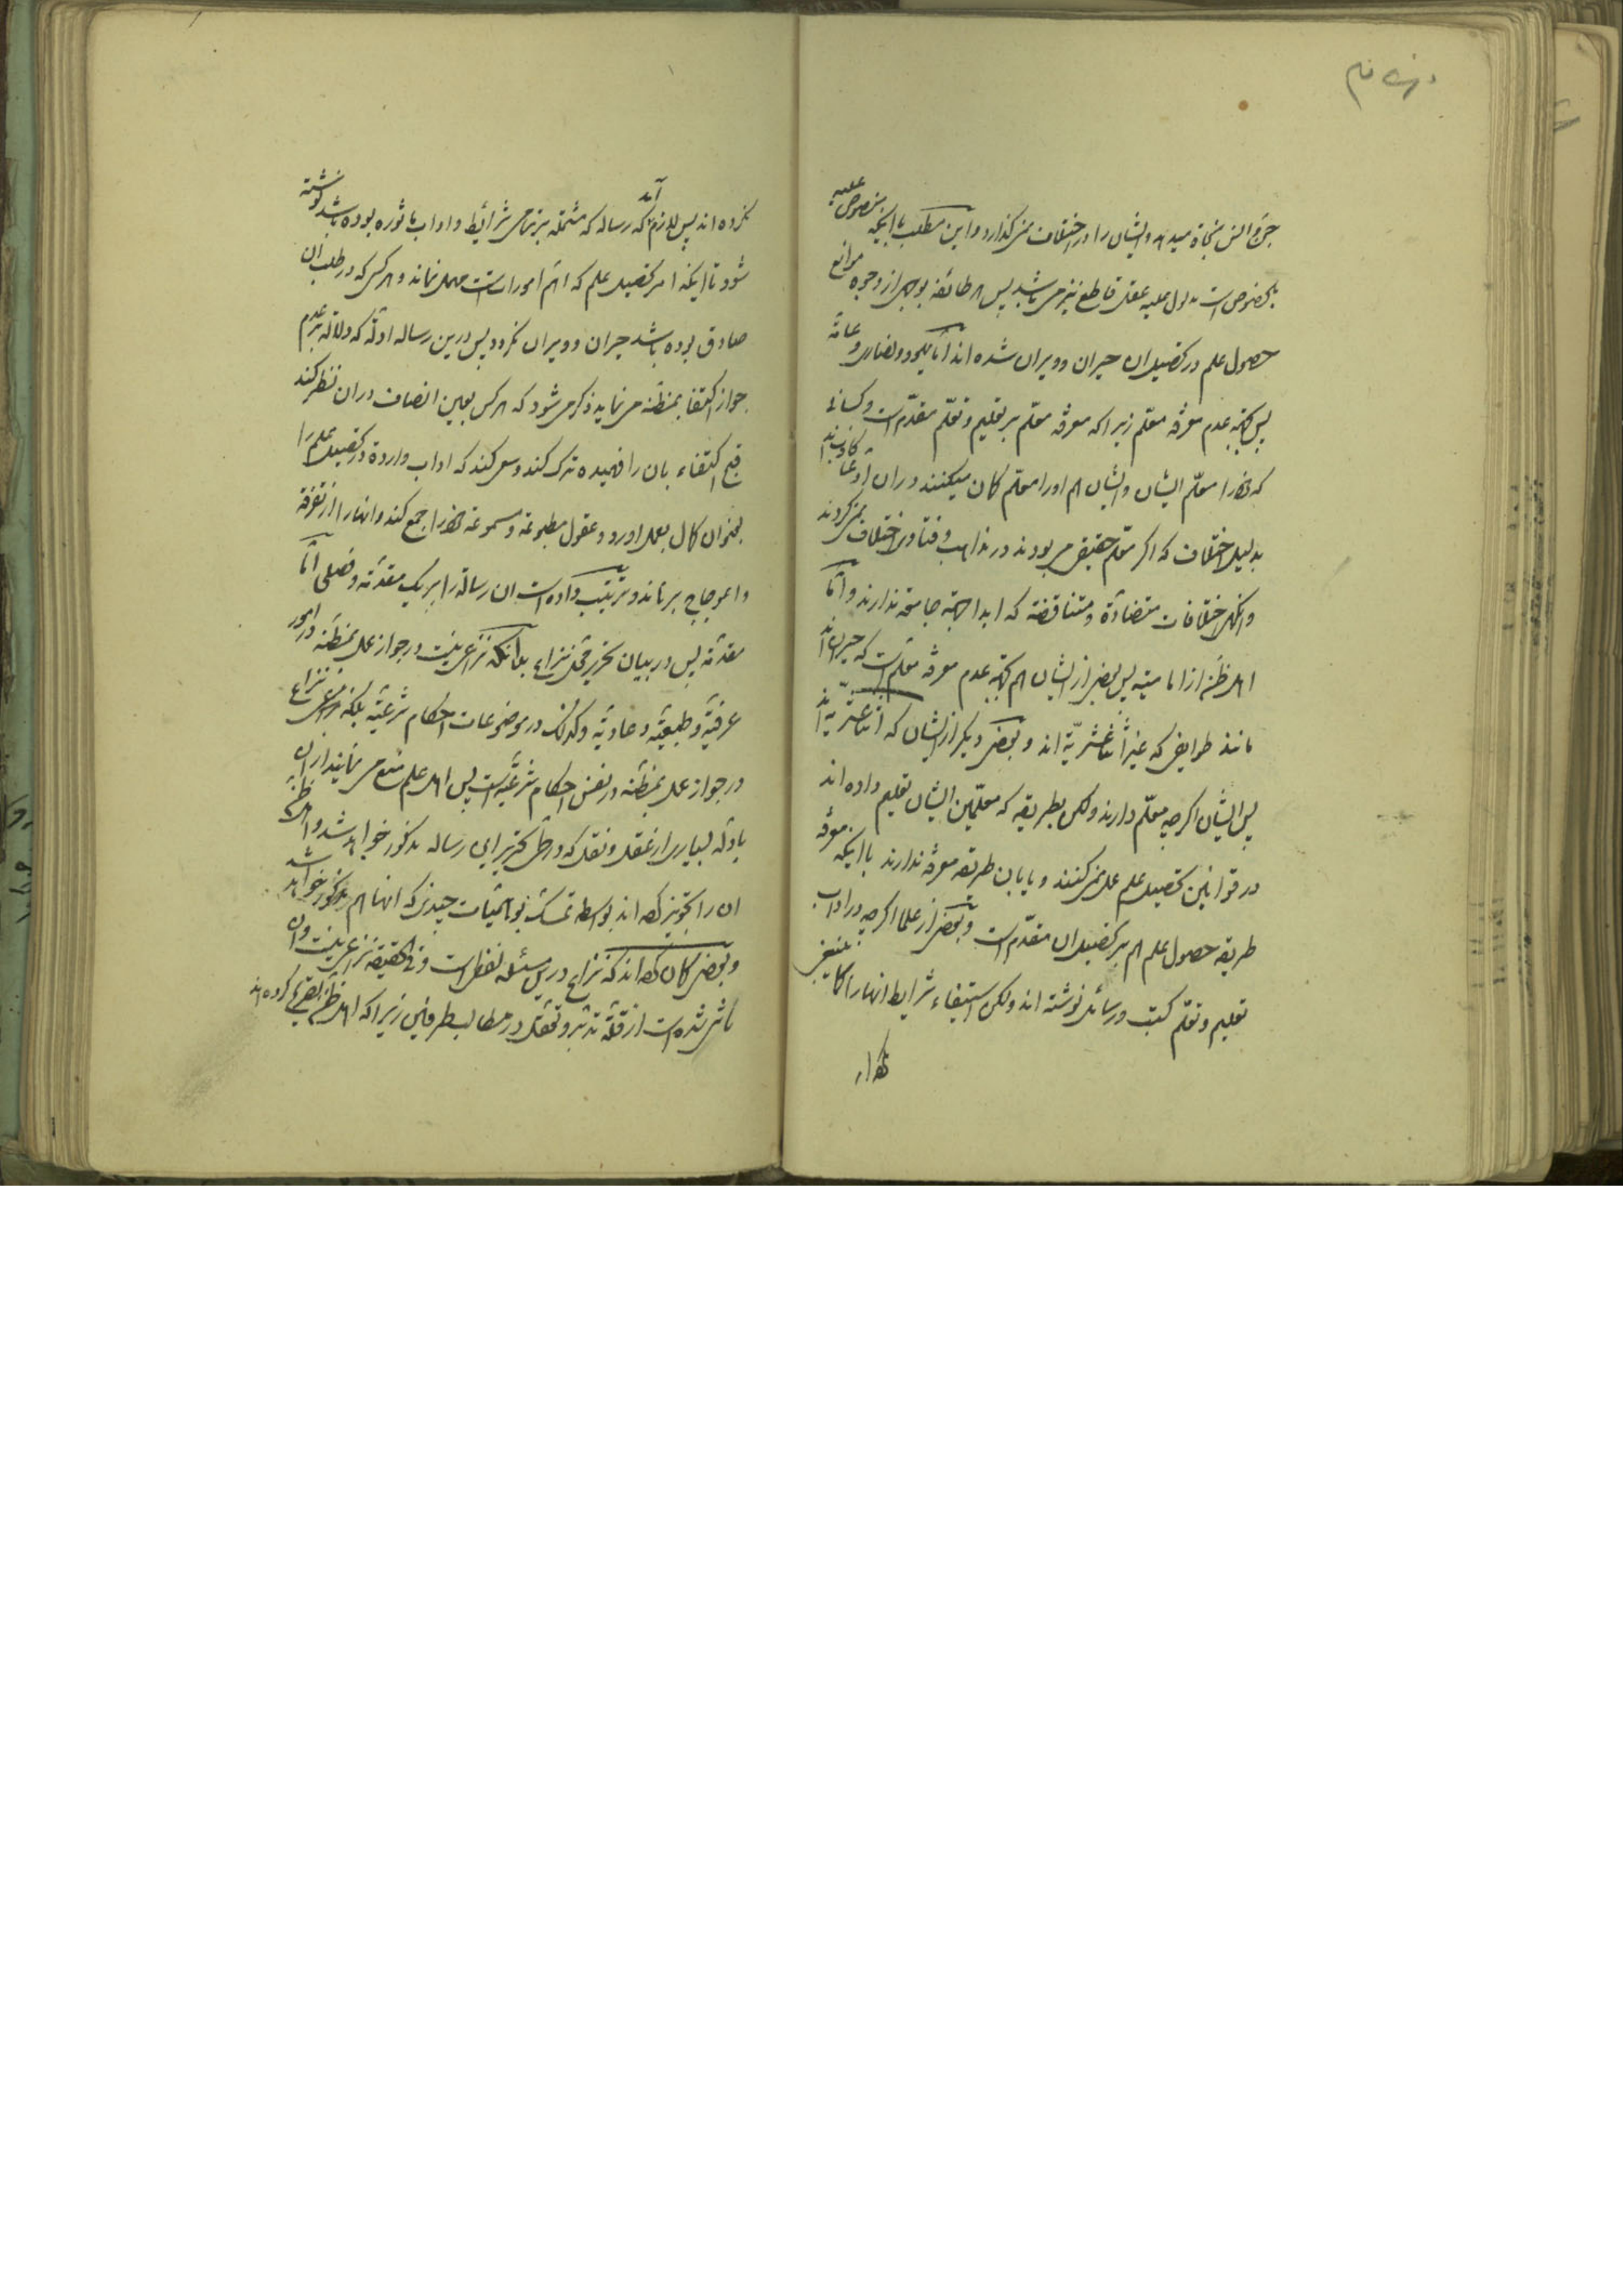 جن و انس نجاة میدهد و ایشان را در اختلاف نمی گذارد و این مطلب با اینکه منصوص علیه
بخصوص است مدلول علیه عقل قاطع نیز می باشد پس هر طائفه بوجهی از وجوه موانع
حصول علم در تحصیل ان حیران و ویران شده اند اما یهود و نصاری و عامّه
پس بجهة عدم معرفة معلّم زیرا که معرفة معلّم بر تعلیم و تعلّم مقدّم است و کسانی
که خود را معلّم ایشان و ایشان هم او را معلّم کمان میکنند در ان ادّعا کاذب اند
بدلیل اختلاف که اکر معلّم حقیقی می بودند در مذاهب و فتاوی اختلاف نمی کردند
وانکهی اختلافات متضادّة و متناقضه که ابدا جهة جامعه ندارند و امّا
اهل ظنّه از امامیّه پس بعضی از ایشان هم بجهة عدم معرفة معلّم است که حیران اند
مانند طوایفی که غیر اثنا عشریّة اند و بعضی دیکر از ایشان که اثنا عشریّه اند
پس ایشان اکرچه معلّم دارند ولکن بطریقه که معلّمین ایشان تعلیم داده اند
در قوانین تحصیل علم عمل نمی کنند و یا بان طریقه معرفة ندارند با اینکه معرفة
طریقه حصول علم هم بر تحصیل ان مقدّم است و بعضی از علما اکرچه در اداب
تعلیم و تعلّم کتب و رسائل نوشته اند ولکن استیفاء شرایط انها را کما ینبغی
نکرده اند
نکرده اند پس لازم آمد که رساله که مشتمله بر تمامی شرائط و اداب ماثوره بوده باشد نوشته
شود تا اینکه امر تحصیل علم که اهمّ امور است مهمل نماند و هر کس که در طلب ان
صادق بوده باشد حیران و ویران نکردد پس درین رساله ادلّه که دلالة بر عدم
جواز اکتفا بمظنّه می نماید ذکر می شود که هر کس بعین انصاف در ان نظر کند
قبح اکتفاء بان را فهمیده ترک کند و سعی کند که اداب واردة در تحصیل علم را
بعنوان کمال بعمل اورد و عقول مطبوعة و مسموعة خود را جمع کند و انها را از تفرقة
و اعوجاج برهاند و ترتیب داده است ان رسالة را بر یک مقدّمة و فصلی امّا
مقدّمة پس در بیان تحریر محلّ نزاع بدانکه نزاعی نیست در جواز عمل بمظنّه در امور
عرفیّة و طبیعیّة و عادیّة و کذلک در موضوعات احکام شرعیّة بلکه نزاع
در جواز عمل بمظنّه در نفس احکام شرعیّه است پس اهل علم منع می نمایند از ان
بادلّه بسیاری از عقل و نقل که در محلّ تحریر این رساله مذکور خواهد شد و اهل ظنّه
ان را تجویز کرده اند بواسطه تمسّک بوهمیّات چندی که انها هم مذکور خواهد شد
و بعضی کمان کرده اند که نزاع درین مسئله لفظی است و فی الحقیقه نزاعی نیست و ان
ناشی شده است از قلّة تدبّر و تعقّل در مطالب طرفین زیرا که اهل ظنّه تصریح کرده اند